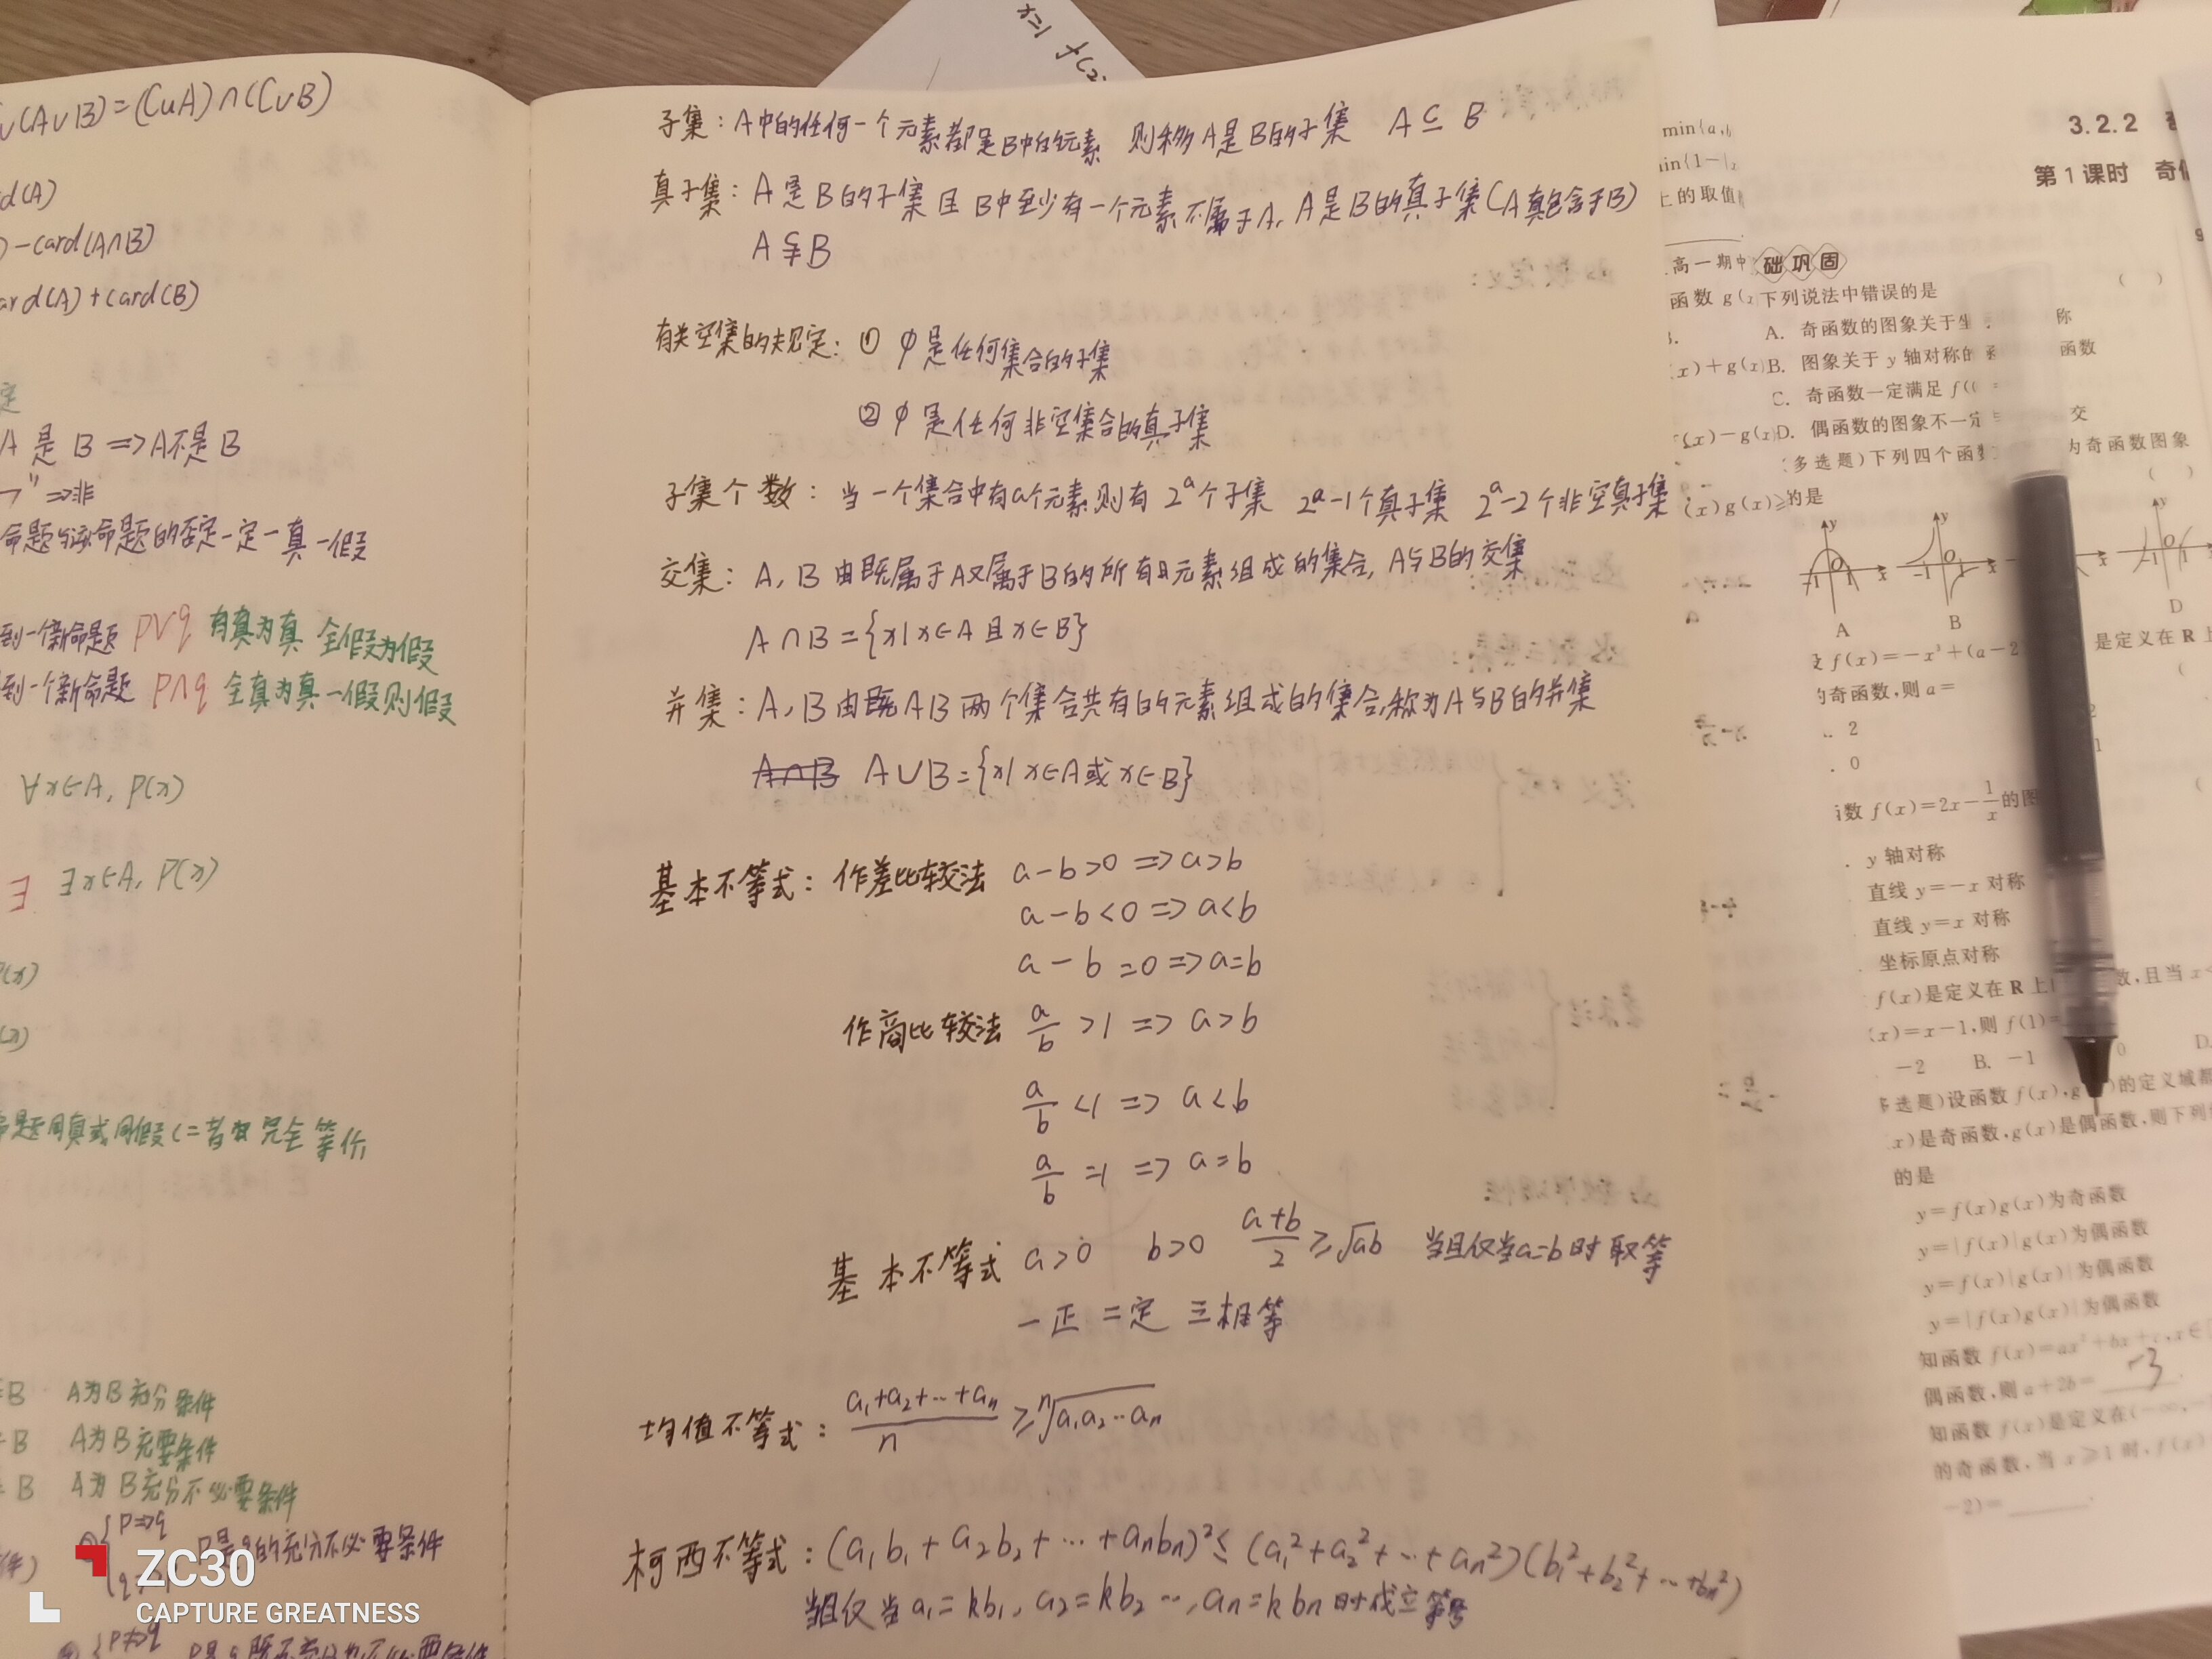 x=1 f(2
(A∪B)=(CuA)∩(CuB)
d(A)
)-card(A∩B)
ard(A)+card(B)
定
A 是 B ⇒A不是B
"¬" ⇒非
命题与该命题的否定一定一真一假
到一个新命题 p∨q 有真为真 全假为假
到一个新命题 p∩q 全真为真 一假则假
∀x∈A, P(x)
∃ ∃x∈A, P(x)
P(x)
(x)
命题同真或同假(二者 完全等价
B A为B充分条件
B A为B充要条件
B A为B充分不必要条件
p⇒q p是q的充分不必要条件
p⇏q
子集：A中的任何一个元素都是B中的元素 则称A是B的子集 A⊆B
真子集：A是B的子集且B中至少有一个元素不属于A, A是B的真子集(A真包含于B)
A⫋B
有关空集的规定：① φ是任何集合的子集
② φ是任何非空集合的真子集
子集个数：当一个集合中有a个元素则有 2^a个子集 2^a-1个真子集 2^a-2个非空真子集
交集：A, B 由既属于A又属于B的所有元素组成的集合, A与B的交集
A∩B={x|x∈A且x∈B}
并集：A, B由既AB两个集合共有的元素组成的集合,称为A与B的并集
A∩B A∪B={x|x∈A或x∈B}
基本不等式：作差比较法 a-b>0 ⇒a>b
a-b<0 ⇒a<b
a-b=0⇒a=b
作商比较法 a/b >1 ⇒ a>b
a/b <1 ⇒ a<b
a/b =1 ⇒ a=b
基本不等式 a>0 b>0 (a+b)/2 ≥√ab 当且仅当a=b时取等
一正 二定 三相等
均值不等式：(a₁+a₂+…+aₙ)/n ≥ ⁿ√a₁a₂…aₙ
柯西不等式：(a₁b₁+a₂b₂+…+aₙbₙ)²≤(a₁²+a₂²+…+aₙ²)(b₁²+b₂²+…+bₙ²)
当且仅当a₁=kb₁, a₂=kb₂ …, aₙ=kbₙ时成立等号
min{a,b
in{1-|
上的取值
高一期中
函数 g(x
x)+g(x)
(x)-g(x)
(x)g(x)≥
3.2.2
第1课时 奇偶
础巩固
下列说法中错误的是 ( )
A. 奇函数的图象关于坐 称
B. 图象关于 y 轴对称的函 函数
C. 奇函数一定满足 f(
D. 偶函数的图象不一定 交
(多选题)下列四个函数 为奇函数图象
的是 ( )
A B D
f(x)=-x³+(a-2 是定义在 R 上
的奇函数,则 a=
2
0
函数 f(x)=2x-1/x的图
y 轴对称
直线 y=-x 对称
直线 y=x 对称
坐标原点对称
f(x)是定义在 R 上 数,且当 x<
(x)=x-1,则 f(1)=
-2 B. -1 0 D.
多选题)设函数 f(x),g )的定义域都
x)是奇函数,g(x)是偶函数,则下列
的是
y=f(x)g(x)为奇函数
y=|f(x)|g(x)为偶函数
y=f(x)|g(x)|为偶函数
y=|f(x)g(x)|为偶函数
知函数 f(x)=ax²+bx+c,x∈[
偶函数,则 a+2b= -3
知函数 f(x)是定义在(-∞,
的奇函数,当 x≥1 时,f(x)
-2)=
ZC30
CAPTURE GREATNESS